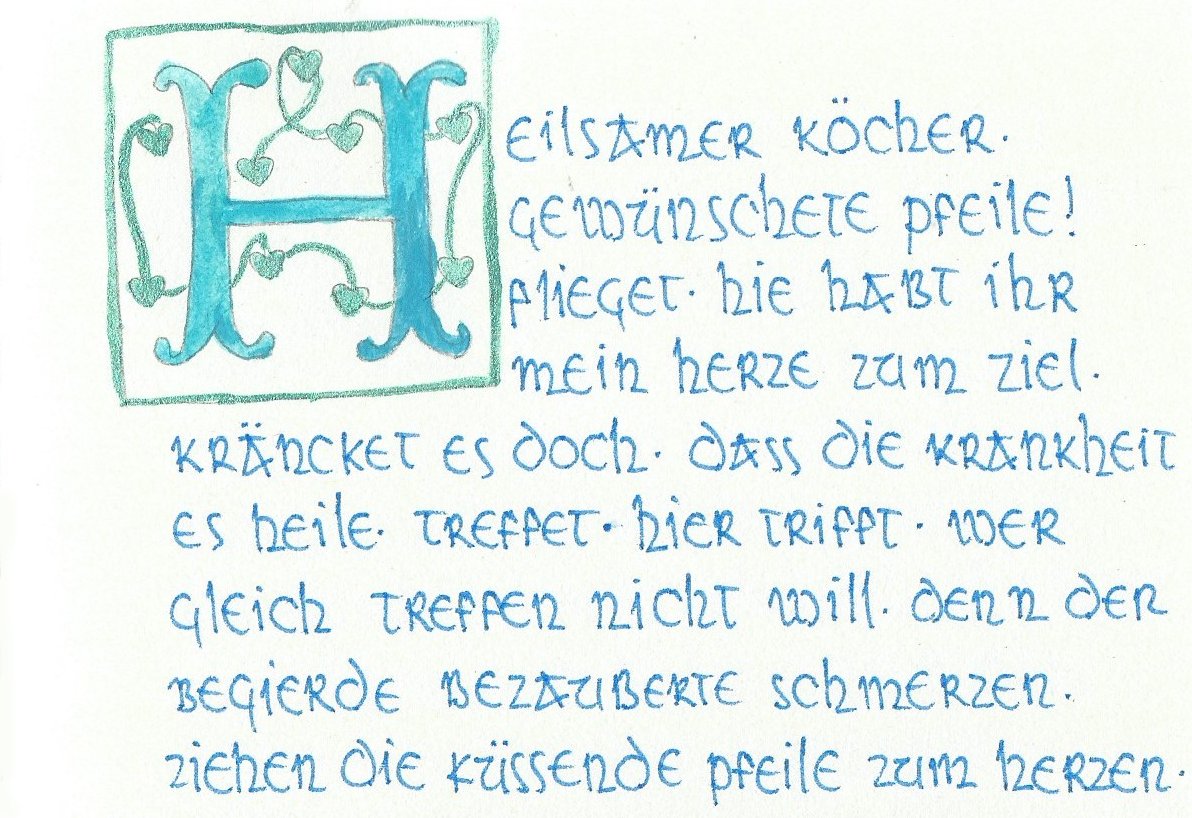 Heilsamer Köcher.
Gewünschete Pfeile!
Flieget. hie habt ihr
mein Herze zum Ziel.
Kräncket es doch. dass die Krankheit
es heile. Treffet. hier trifft. wer
gleich treffen nicht will. denn der
Begierde bezauberte Schmerzen.
ziehen die küssende Pfeile zum Herzen.